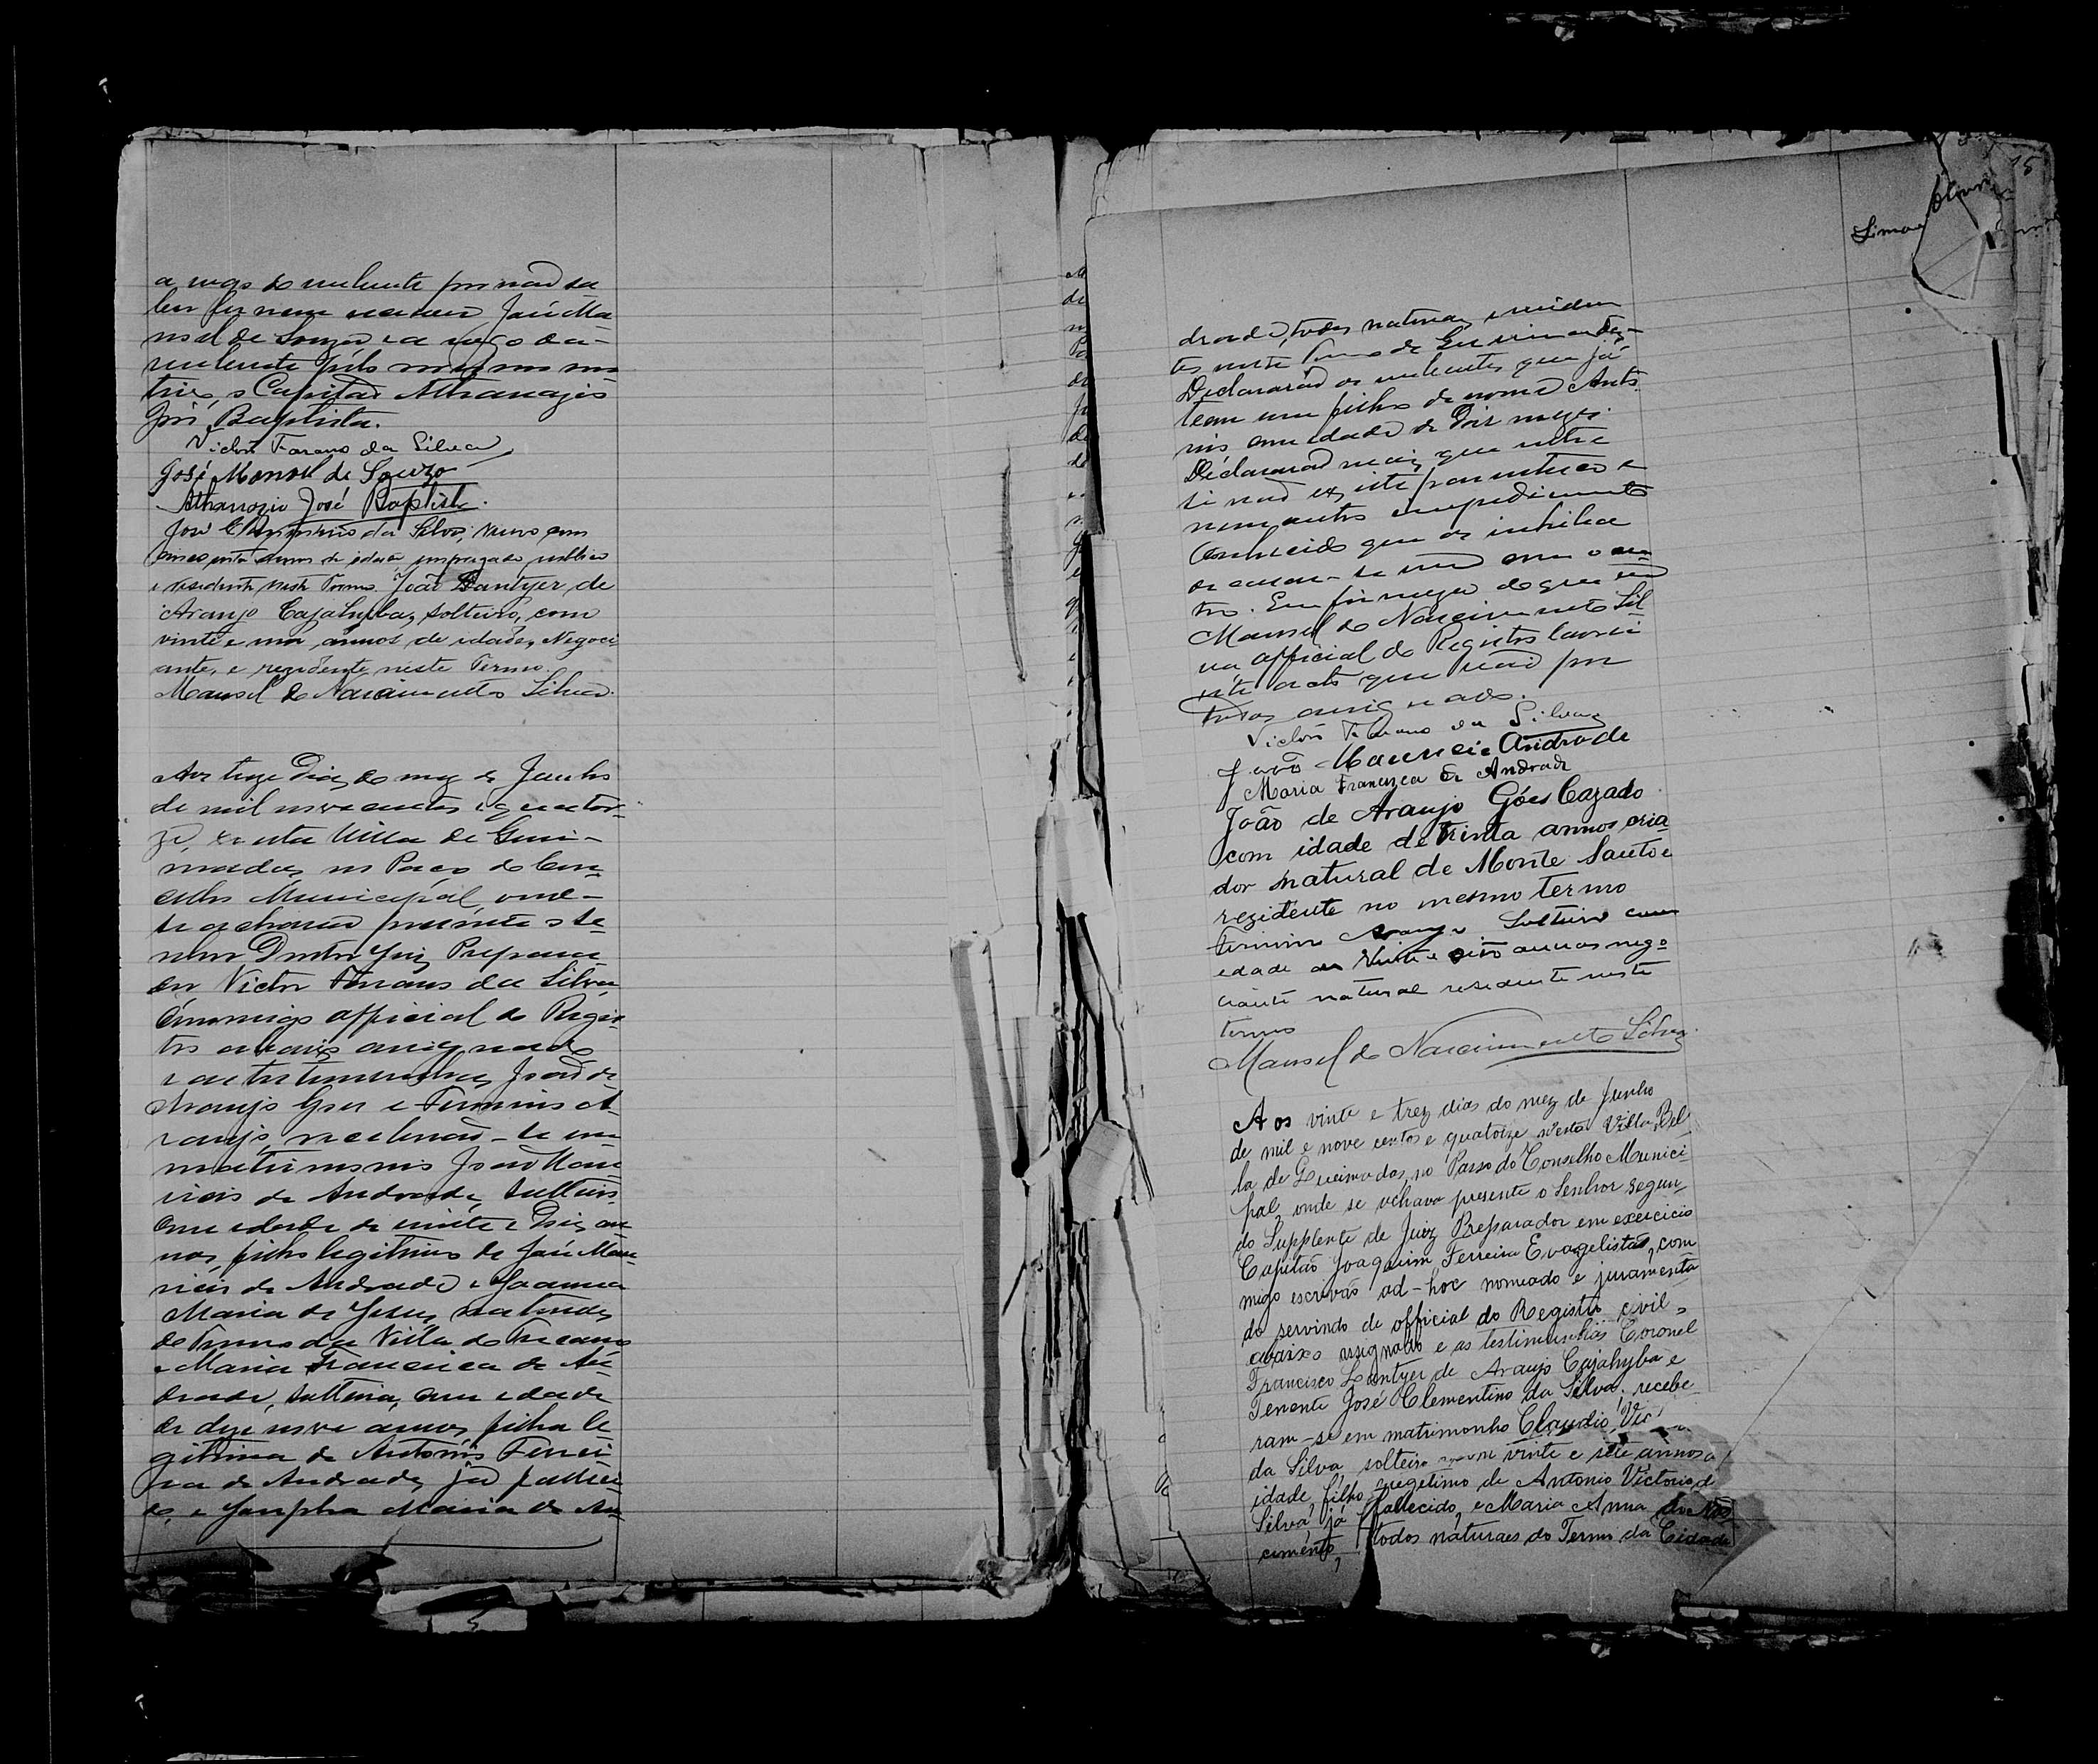 a rogo do nubente por não sa
ber ler nem escrever José Ma
noel de Souza e a rogo da
nubente pelo mesmo mo
tivo, o Capitão Athanazio
José Baptista.
Victor Farano da Silva
José Manoel de Souza
Athanazio José Baptista.
José Clementino da Silva, viuvo com
cincoenta annos de edade, empregado publico
e residente neste Termo. João Lantyer de
Araujo Cajahyba, solteiro, com
vinte e um annos de idade, Negoci
ante, e rezidente neste Termo.
Manoel do Nascimento Silva.
Aos treze dias do mez de Junho
de mil novecentos e quator-
ze, nesta Villa de Quei-
madas, no Paço do Con
celho Municipal, onde
se achava presente o Se
nhor Doutor Juiz Prepara
dor Victor Farano da Silva,
commigo official do Regis
tro abaixo assignado
e as testemunhas João de
Araujo Góes e Firmino A
raujo, receberão-se em
matrimonio João Mau
ricio de Andrade, solteiro
com edade de vinte e dois an
nos, filho legitimo de José Mau
ricio de Andrade e Joanna
Maria de Jesus, naturaes
do Termo da Villa do Tucano
e Maria Francisca de An
drade, solteira, com edade
de dezenove annos, filha le
gitima de Antonio Ferrei
ra de Andrade, já falleci
do, e Josepha Maria de An
15
drade, todos naturaes e residen
tes neste Termo de Queimadas.
Declararão os nubentes que já
team um filho de nome Anto
nio com edade de dois mezes.
Declararão mais que entre
si não existe parentesco e
nem outro impedimento
conhecido que os inhiba
de casar-se um com o ou
tro. Em firmeza do que eu
Manoel do Nascimento Sil
va official do Registro lavrei
este acto que vai por
todos assignado.
Victor Farano da Silva
João Mauricio Andrade
Maria Francisca de Andrade
João de Araujo Góes Cazado
com idade de Trinta annos cria
dor natural de Monte Santo e
rezidente no mesmo termo
Firmino Araujo Solteiro com
edade de Vinte e oito annos nego
ciante natural residente neste
termo
Manoel do Nascimento Silva.
Aos vinte e trez dias do mez de Junho
de mil e nove centos e quatorze n'esta Villa Bel
la de Queimadas, no Passo do Conselho Munici-
pal, onde se achava presente o Senhor segun-
do Supplente de Juiz Preparador em exercicio
Capitão Joaquim Ferreira Evangelista, com
migo escrivão ad-hoc nomeado e juramenta
do servindo de official do Registro civil,
abaixo assignado e as testimunhas Coronel
Francisco Lantyer de Araujo Cajahyba e
Tenente José Clementino da Silva, recebe-
ram-se em matrimonho Claudio
da Silva solteiro com vinte e sete annos
idade, filho legetimo de Antonio Victorio d
Silva já fallecido, e Maria Anna do Nas
cimento, todos naturaes do Termo da Cidade